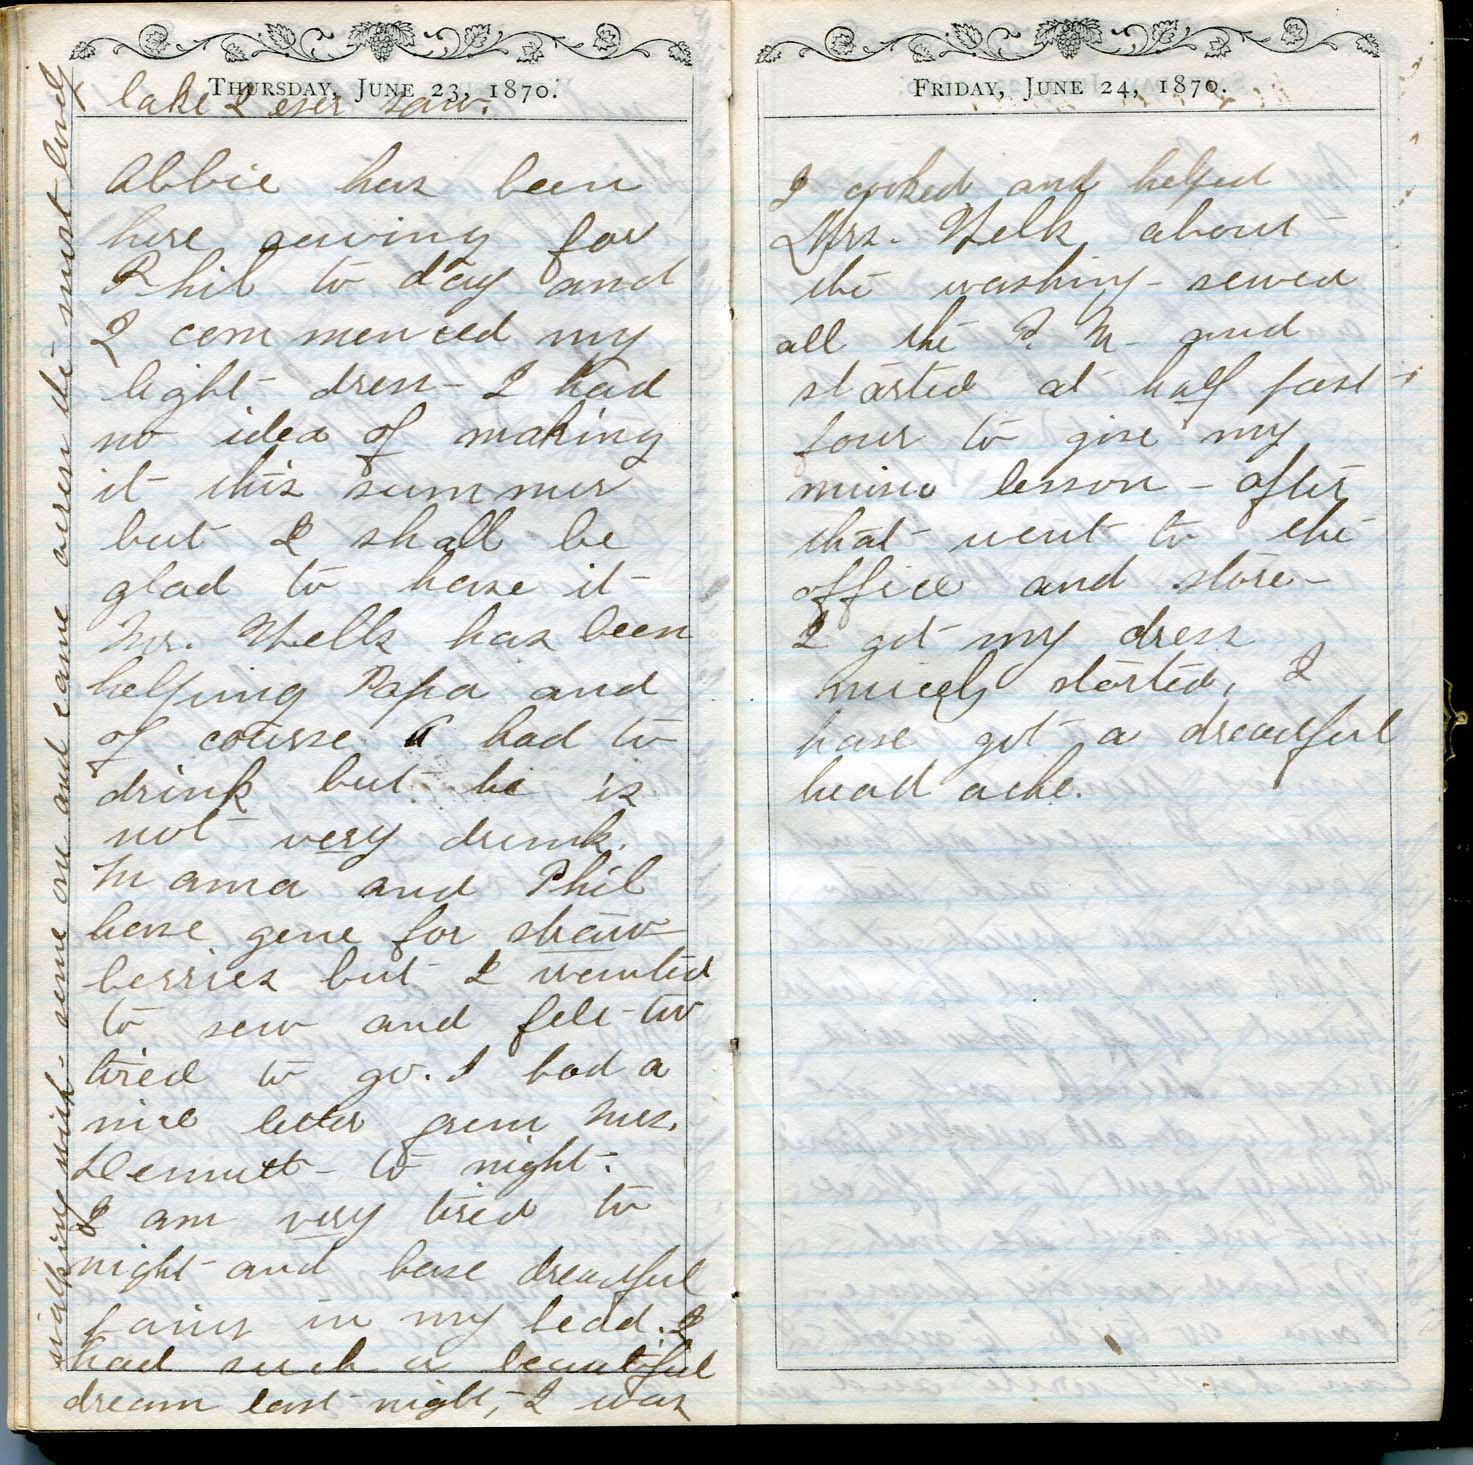 THURSDAY, JUNE 23, 1870.
Abbie has been
here sewing for
Phil to day and
I commenced my
light dress - I had
no idea of making
it this summer
but I shall be
glad to have it -
Mr. Wells has been
helping Papa and
of course had to
drink but he is
not very drunk.
Mama and Phil
have gone for straw
berries but I wanted
to sew and felt too
tired to go. I had a
nice letter from Mrs.
to night.
I am very tired to
night and have dreadful
pains in my head. I
had such a beautiful
dream last night, I was
walking with some one and came across the most lovely
lake I ever saw.
FRIDAY, JUNE 24, 1870.
I cooked and helped
Mrs. Welk about
the washing - sewed
all the P. M. and
started at half past
four to give my
music lesson - after
that went to the
office and store -
I got my dress
nicely started, I
have got a dreadful
head ache.